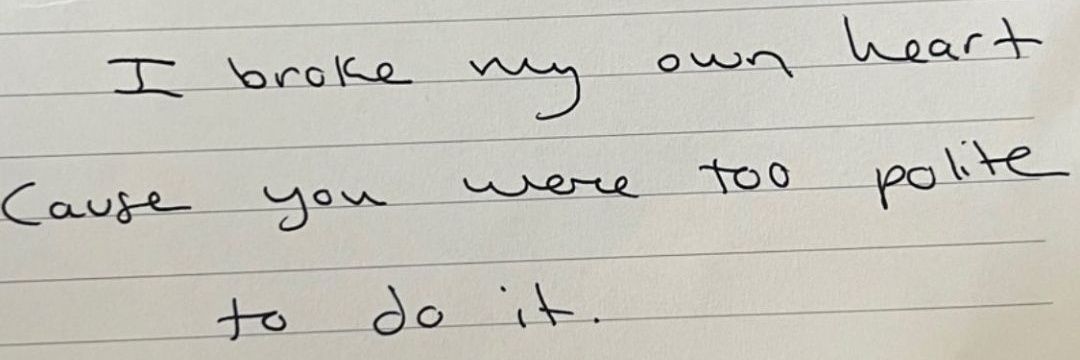 I broke my own heart
Cause you were too polite
to do it.